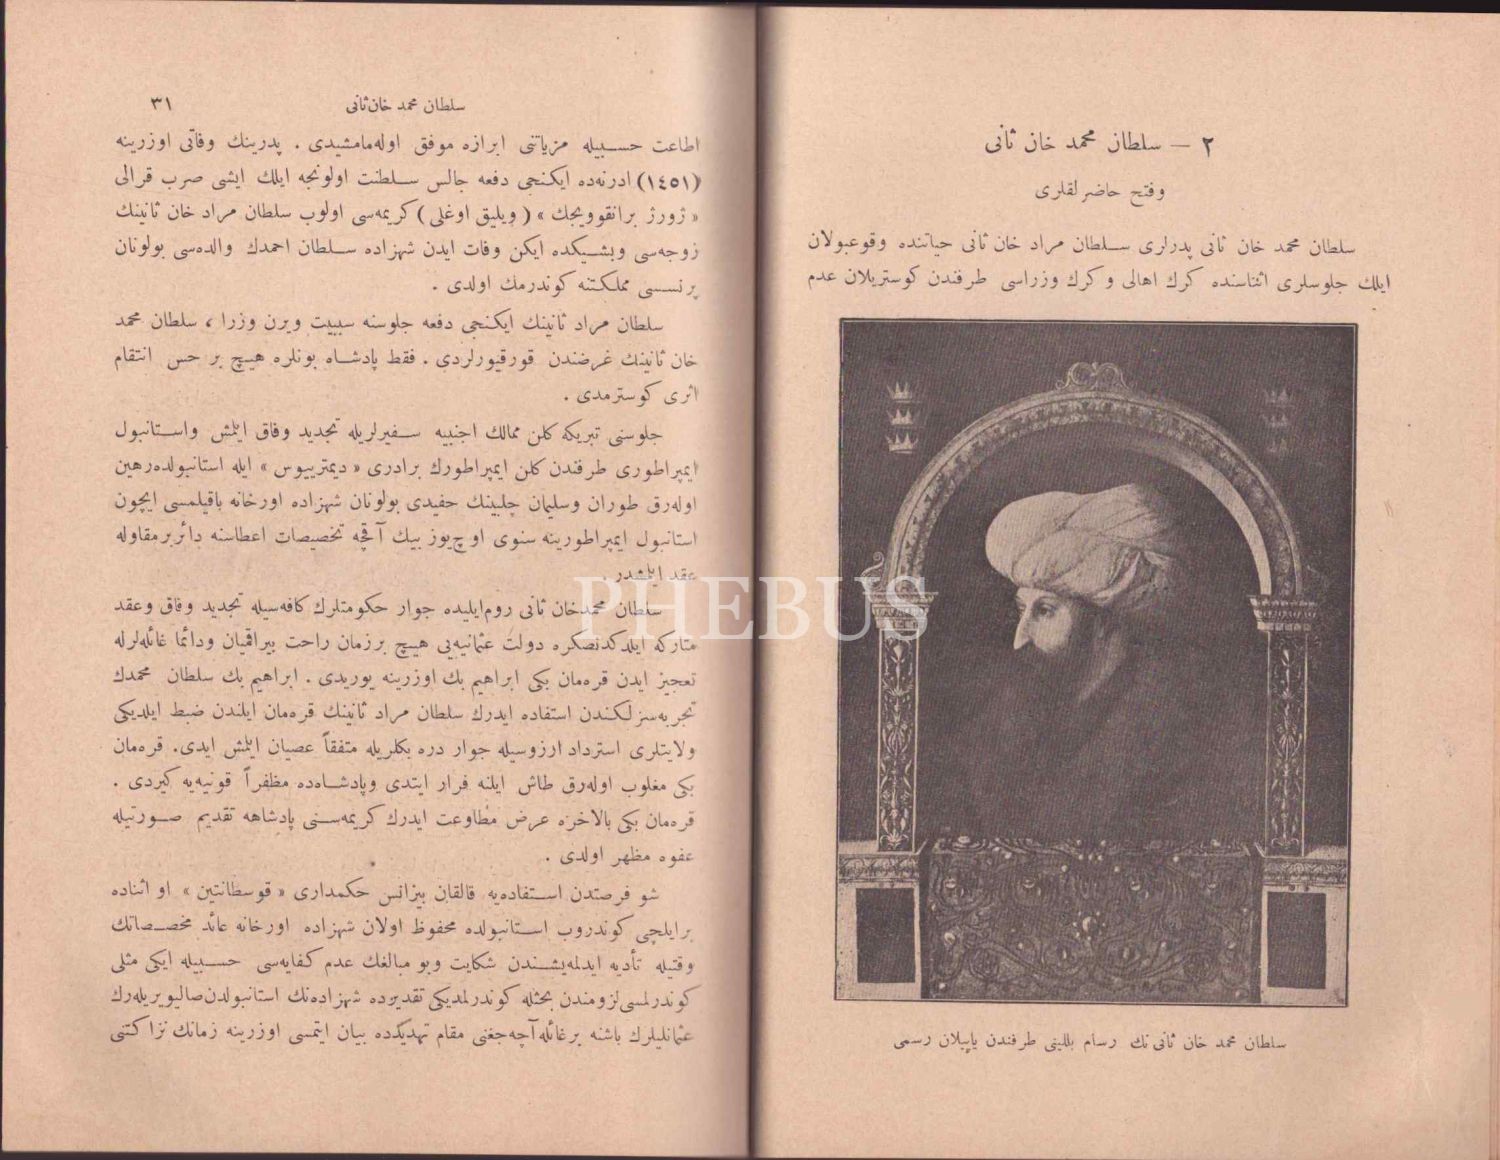 ٢ — سلطان محمد خان ثانی
وفتح حاضرلقلری
سلطان محمد خان ثانی پدرلری سلطان مراد خان ثانی حیاتنده وقوعبولان
ایلك جلوسلری اثناسنده كرك اهالی و كرك وزراسی طرفندن كوستریلان عدم
سلطان محمد خان ثانی نك رسام بللینی طرفندن یاپیلان رسمی
سلطان محمد خان ثانی
٣١
اطاعت حسبیله مزیاتنی ابرازه موفق اوله‌مامشیدی . پدرینك وفاتی اوزرینه
(١٤٥١) ادرنه‌ده ایكنجی دفعه جالس سلطنت اولونجه ایلك ایشی صرب قرالی
« ژورژ برانقوویجك » ( ویلیق اوغلی ) كریمه‌سی اولوب سلطان مراد خان ثانینك
زوجه‌سی وبشیكده ایكن وفات ایدن شهزاده سلطان احمدك والده‌سی بولونان
پرنسسی مملكتنه كوندرمك اولدی .
سلطان مراد ثانینك ایكنجی دفعه جلوسنه سببیت ویرن وزرا ، سلطان محمد
خان ثانینك غرضندن قورقیورلردی . فقط پادشاه بونلره هیچ بر حس انتقام
اثری كوسترمدی .
جلوسنی تبریكه كلن ممالك اجنبیه سفیرلریله تجدید وفاق ایلمش واستانبول
ایمپراطوری طرفندن كلن ایمپراطورك برادری « دیمتریيوس » ایله استانبولده‌رهین
اوله‌رق طوران وسلیمان چلبینك حفیدی بولونان شهزاده اورخانه باقیلمسی ایچون
استانبول ایمپراطورینه سنوی اوچ‌یوز بیك آقچه تخصیصات اعطاسنه دائر بر مقاوله
عقد ایلمشدر .
سلطان محمدخان ثانی روم‌ایلیده جوار حكومتلرك كافه‌سیله تجدید وفاق وعقد
متاركه ایلدكدنصكره دولت عثمانیه‌یی هیچ برزمان راحت بیراقمیان ودائما غائله‌لرله
تعجیز ایدن قره‌مان بكی ابراهیم بك اوزرینه یوریدی . ابراهیم بك سلطان محمدك
تجربه‌سزلكندن استفاده ایدرك سلطان مراد ثانینك قره‌مان ایلندن ضبط ایلدیكی
ولایتلری استرداد آرزوسیله جوار دره بكلریله متفقاً عصیان ایلمش ایدی. قره‌مان
بكی مغلوب اوله‌رق طاش ایلنه فرار ایتدی وپادشاه‌ده مظفراً قونیه‌یه كیردی .
قره‌مان بكی بالاخره عرض مطاوعت ایدرك كریمه‌سنی پادشاهه تقدیم صورتیله
عفوه مظهر اولدی .
شو فرصتدن استفاده‌یه قالقان بیزانس حكمداری « قوسطانتین » او اثناده
برایلچی كوندروب استانبولده محفوظ اولان شهزاده اورخانه عائد مخصصاتك
وقتیله تأدیه ایدلمه‌یشندن شكایت وبو مبالغك عدم كفایه‌سی حسبیله ایكی مثلی
كوندرلمسی لزومندن بحثله كوندرلمدیكی تقدیرده شهزاده‌نك استانبولدن‌صالیویریله‌رك
عثمانلیلرك باشنه برغائله آچه‌جغنی مقام تهدیدده بیان ایتمسی اوزرینه زمانك نزاكتنی
PHEBUS